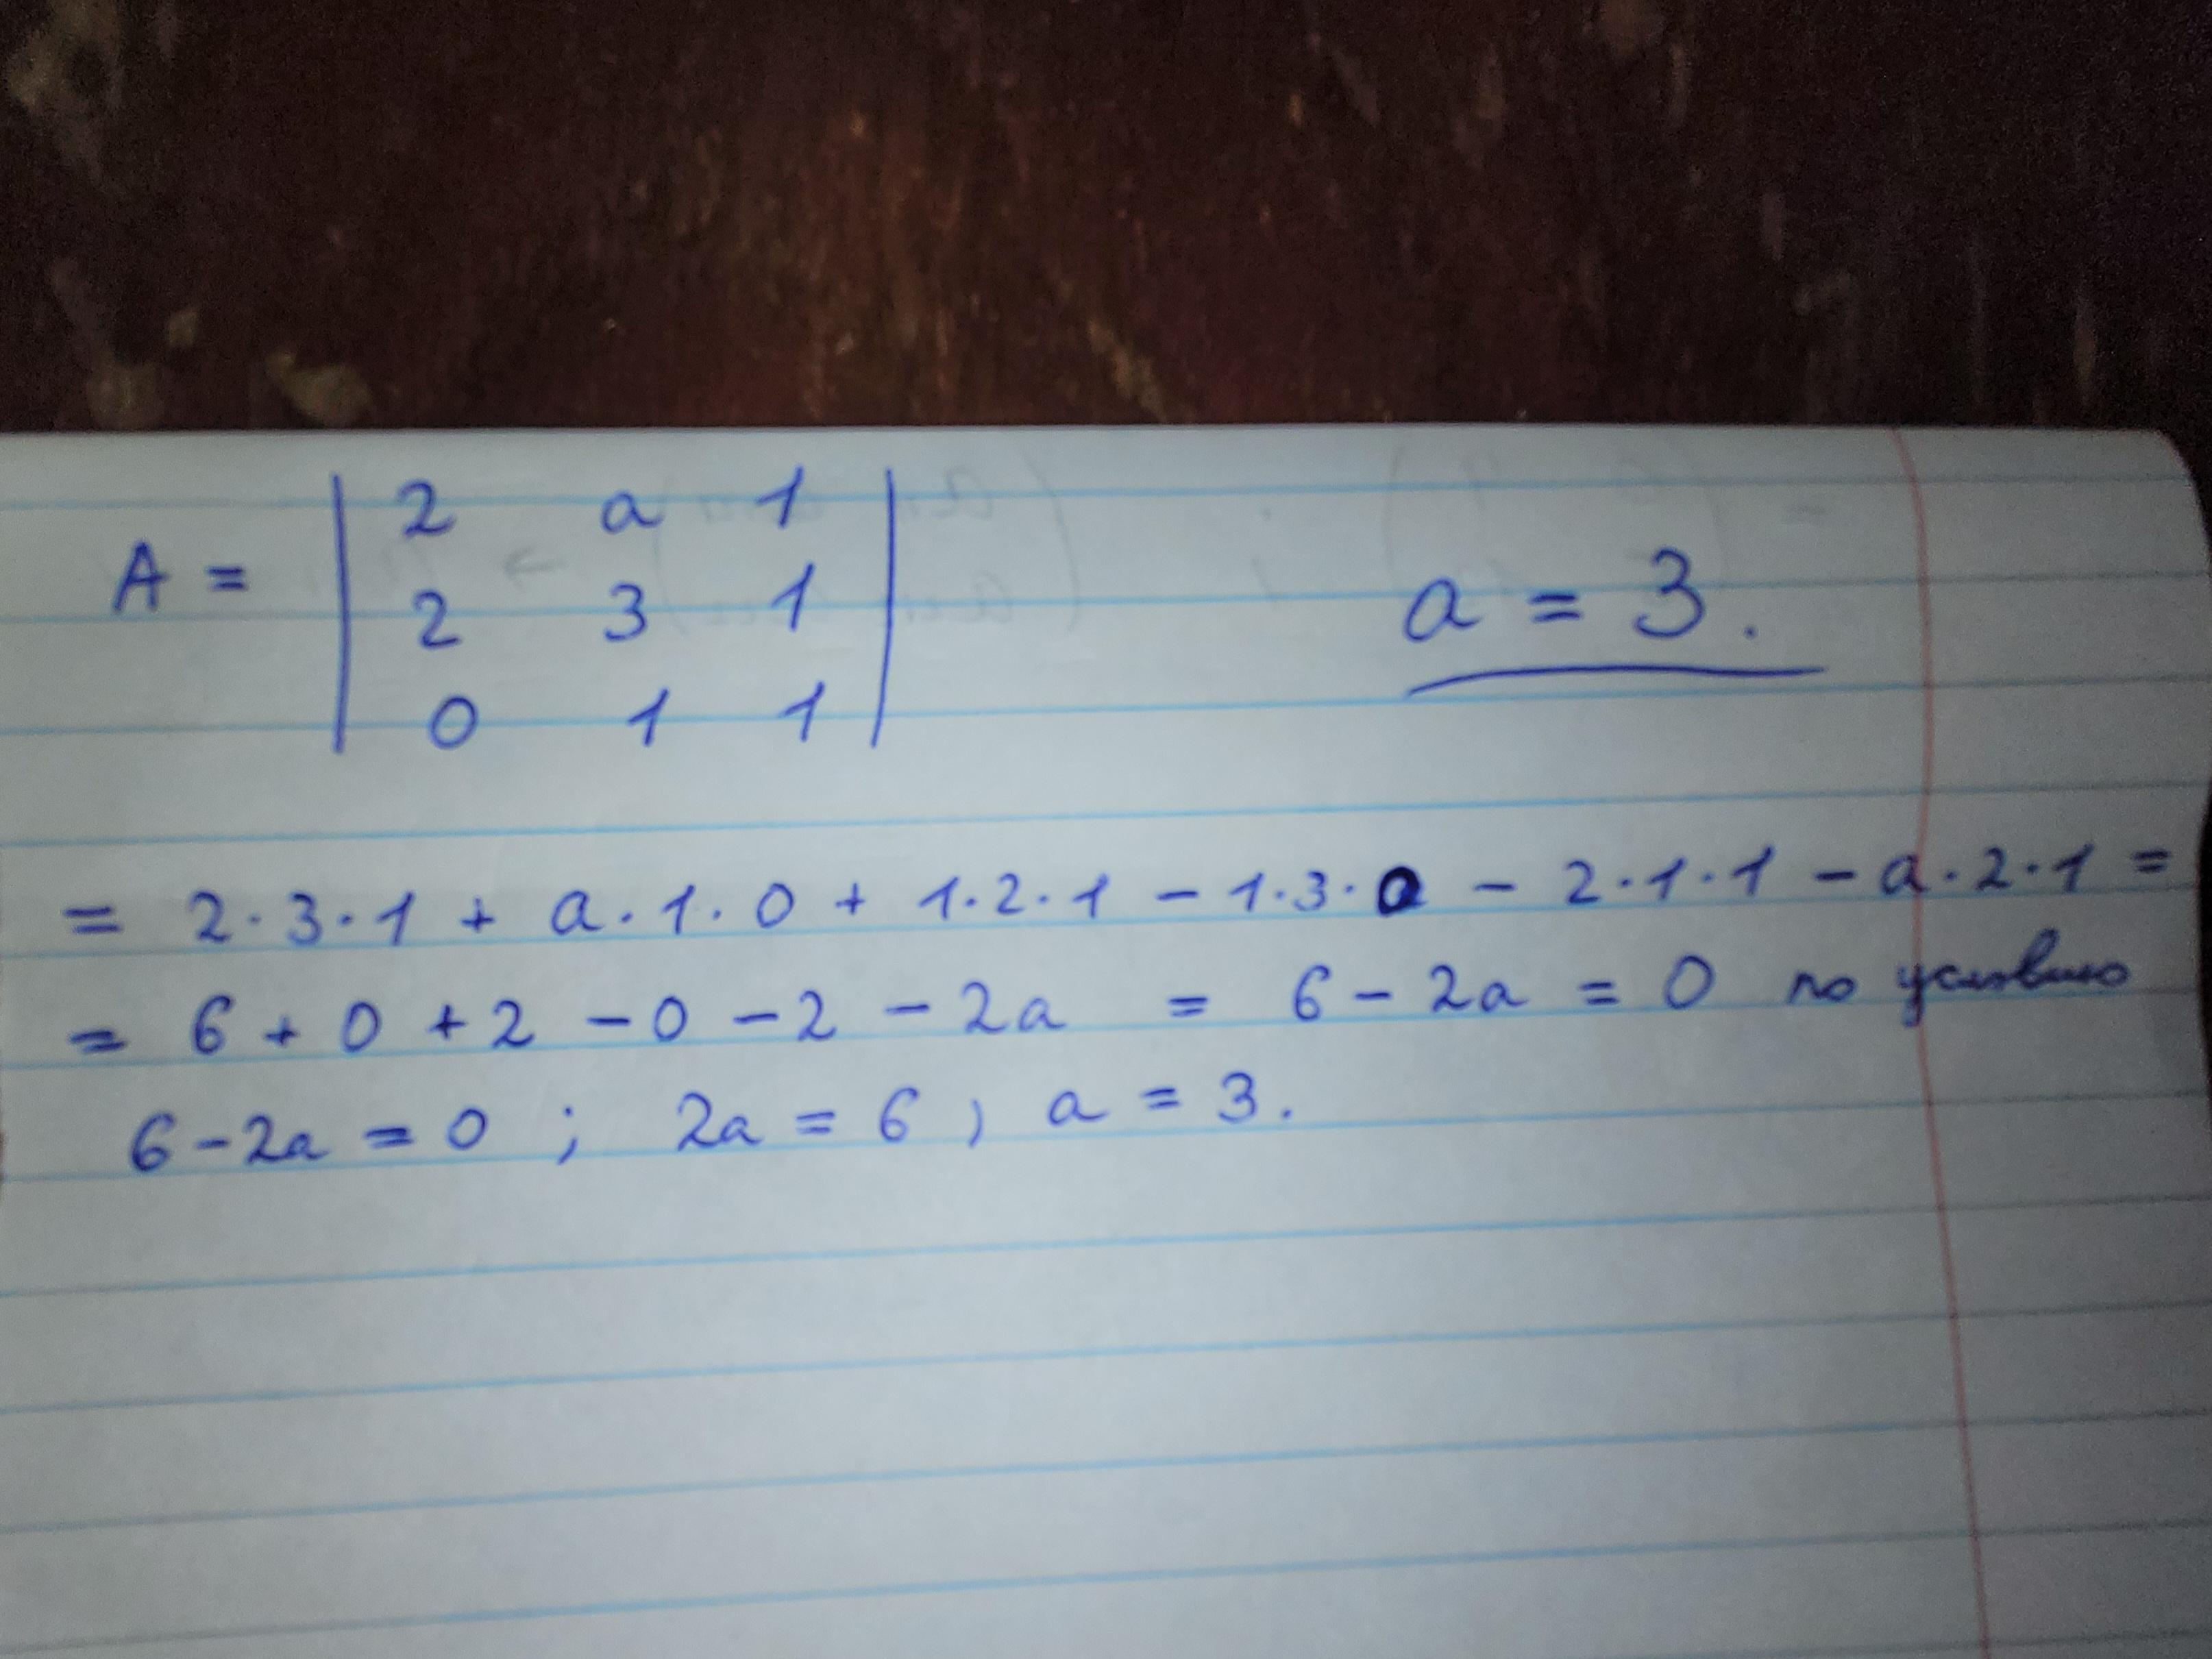 A = | 2 a 1 |
| 2 3 1 |
| 0 1 1 |
a = 3.
= 2·3·1 + a·1·0 + 1·2·1 − 1·3·0 − 2·1·1 − a·2·1 =
= 6 + 0 + 2 − 0 − 2 − 2a = 6 − 2a = 0 по условию
6 − 2a = 0 ; 2a = 6 ; a = 3.